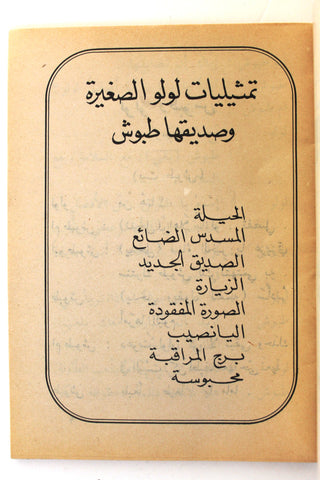 تمثيليات لولو الصغيرة
وصديقها طبوش
الحيلة
المسدس الضائع
الصديق الجديد
الزيارة
الصورة المفقودة
اليانصيب
برج المراقبة
محبوسة